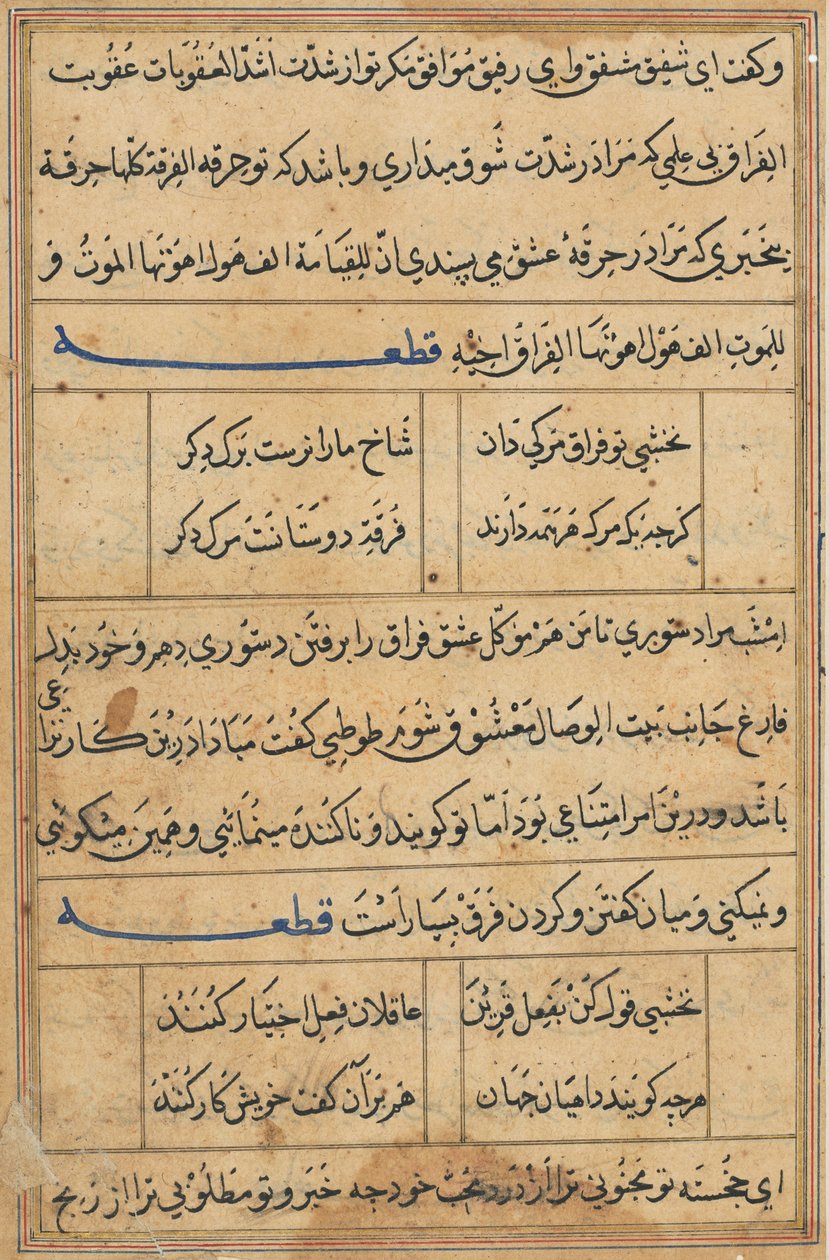 و کفت ای شفیق مشفق وای رفیق مُوَافق مکر تو از شدّت اَشَدّ العُقُوبَات عُقوُبت
الفِرَاق بی عِلمی که مَرَا دَر شدّت شَوق میدَاری و باشد که تو حِرقه الفِرقة کلّها حِرقَة
بیخَبَری که مَرَا دَر حِرقَهٔ عشق می پسندی انّ للِقیَامَة الف هَول اهوَنها المَوتُ وَ
للِمَوتِ الف هَوْل اهوَنُهَا الفِرَاقُ اخِیْهِ قطعه
نخشبی تو فراق مرکی دَان شَاخ مارا نرست بَرک دِکر
کَرچه یک مرک هَر همه دَارند فُرقَتِ دوستَانَستَ مرک دکر
اِمْشَب مرا دستوری تا من هَمْ مؤکّل عشق فراق را برفتَن دستوُری دِهم وَ خوُد بَدِل
فارِغ جَانِب بَیت الوِصَال مَعْشُوْق شَوَم طوطِی کفُتَ مَبَادَا دَریْنَ کَار ترَا رَعِی
بَاشَد و درینَ امر امتِنَاعی بُوَد اَمّا تو کویند وَ ناکُننَدهَ مینُمَائی و هَمِینَ میکوئی
و نمیکنی وَ میان کفتَن و کردن فَرَقْ بِسَیار اسْتَ قطعه
نخشبی قول کنْ بَفِعل قَریْنَ عاقلان فِعل اختیَار کُنَنْد
هرچه کویَندَ داهیَان جَهَان هَم بَرَان کفت خویش کَار کُنَنْدَ
ای خجُسته تو مَجنُونی ترا اَز دَرد مُحِبّ خود چه خَبَر و تو مَطلوُبی ترا از رنج